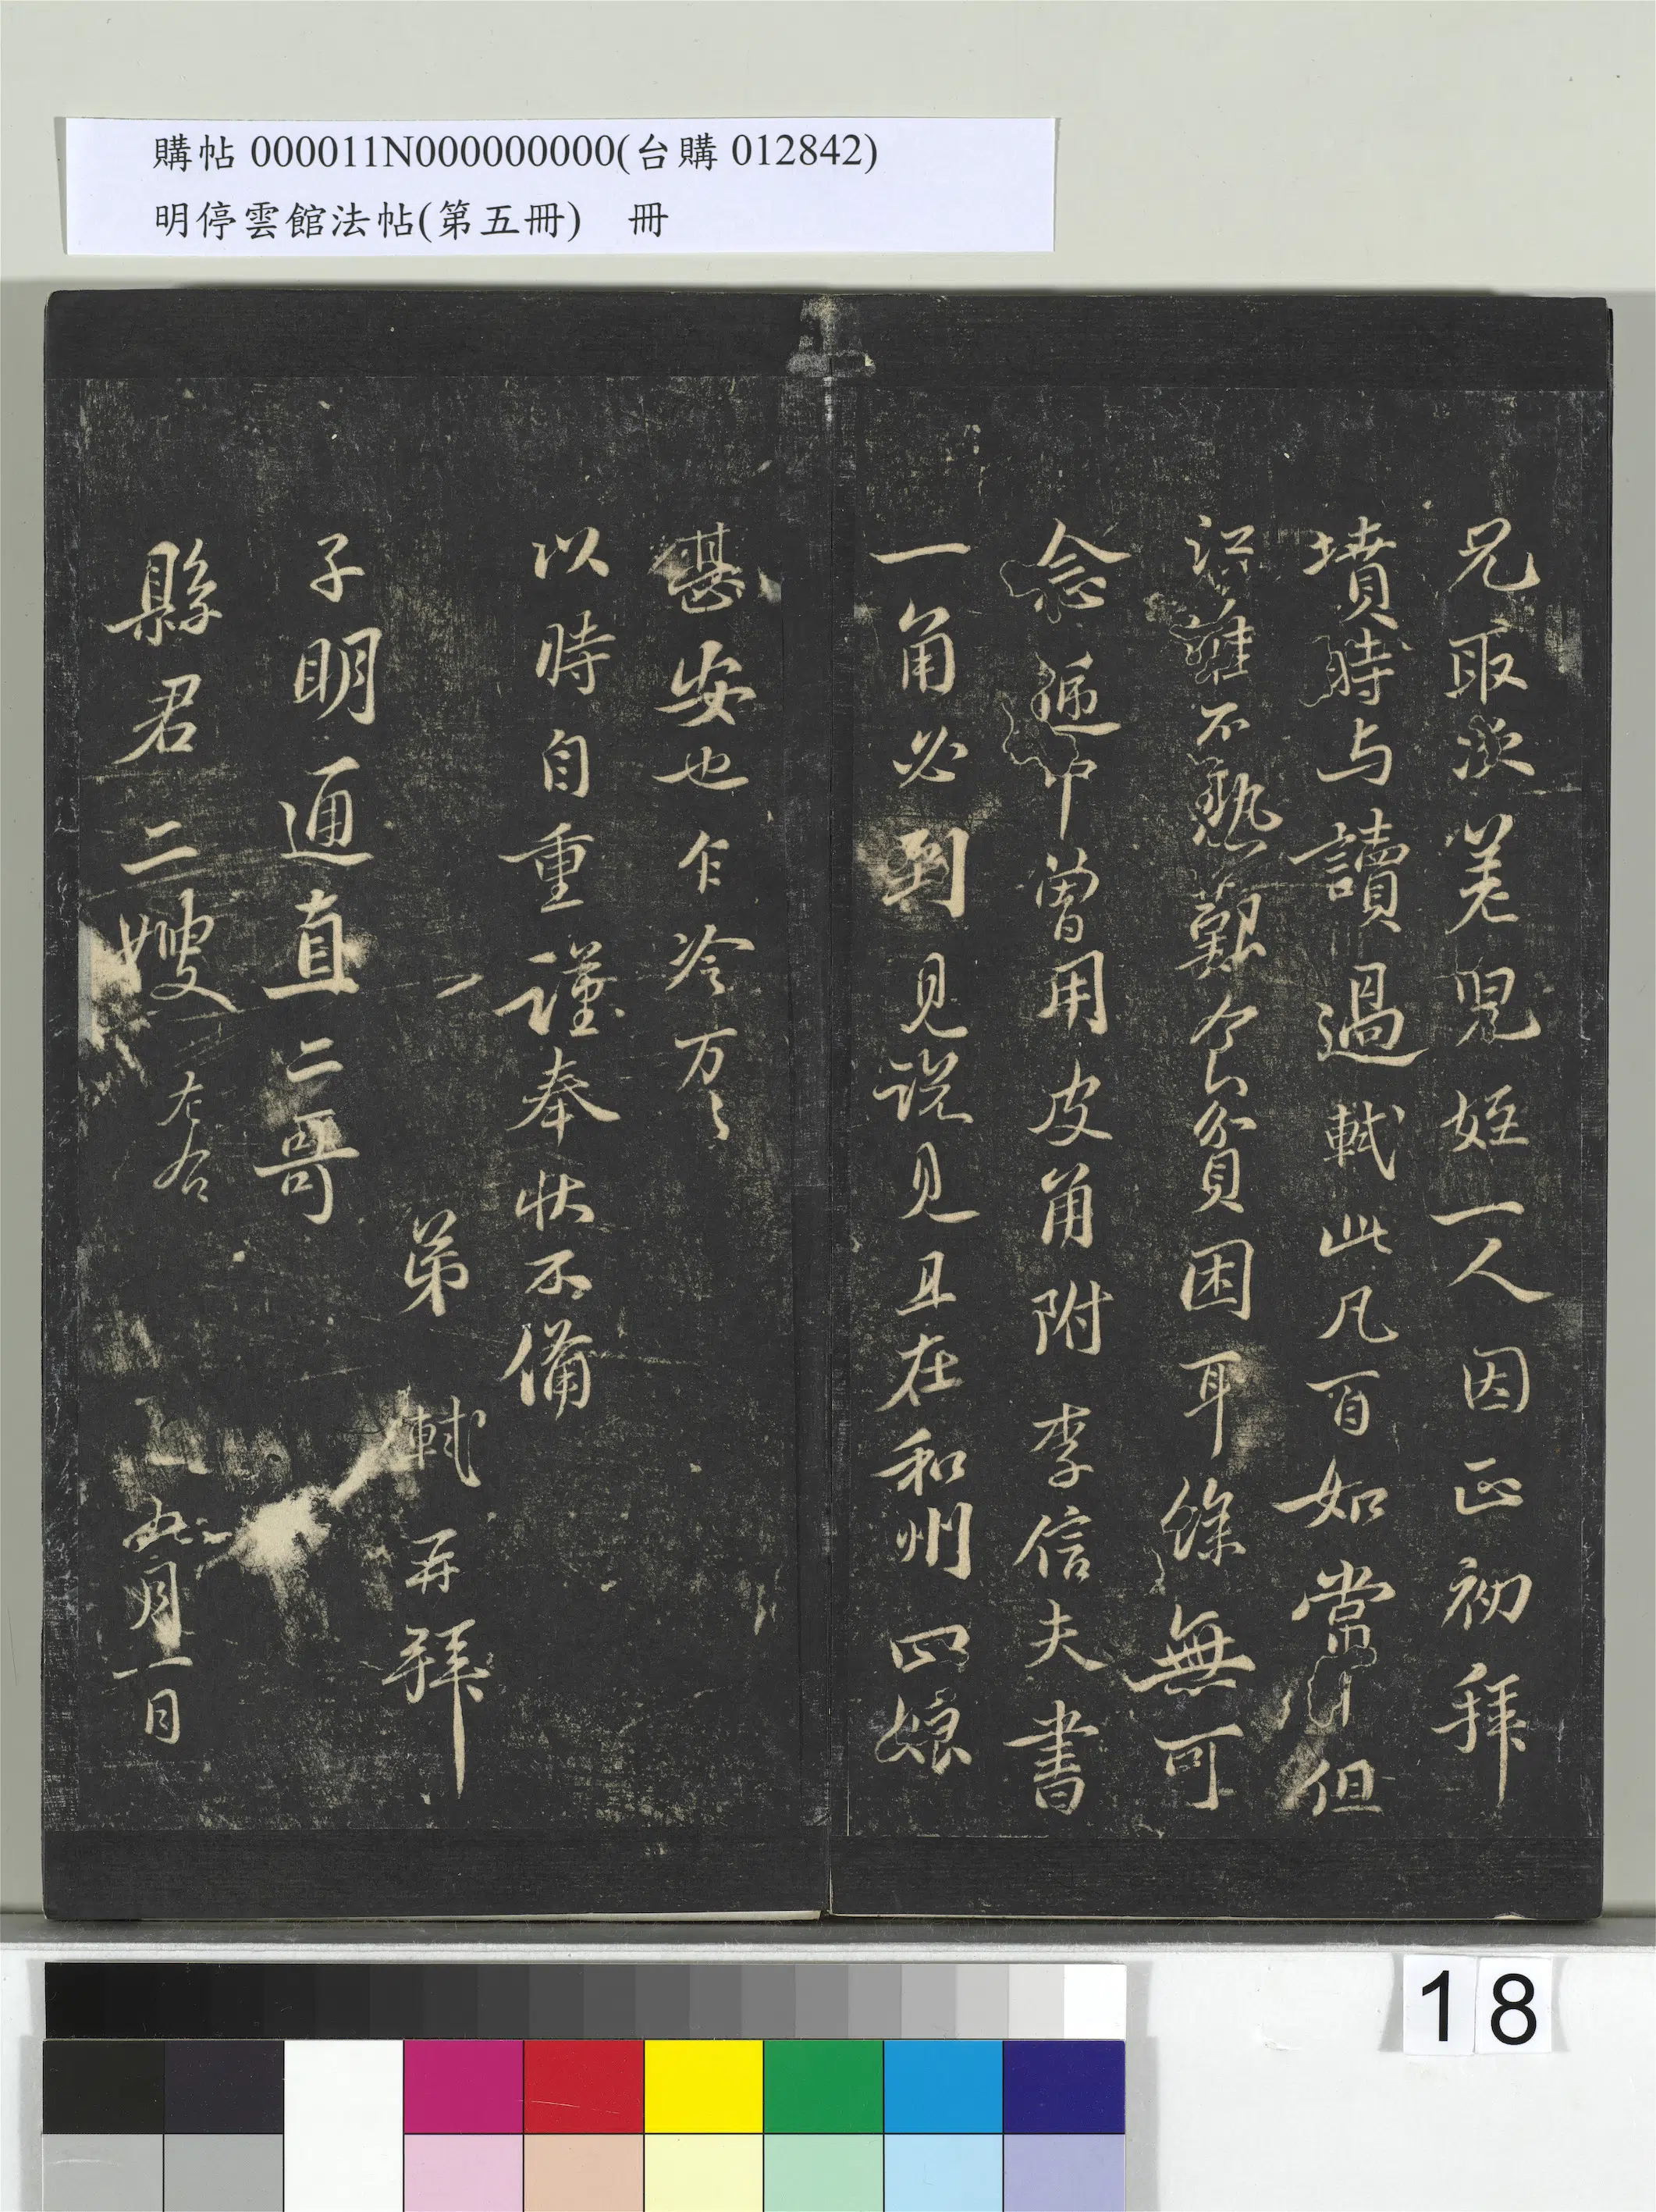 購帖 000011N000000000(台購 012842)
明停雲館法帖(第五冊) 冊
兄取次羌兒姪一人因正初拜
墳時与讀過軾此凡百如常但
誰不熟艱食貧困耳餘無可
念遞中曾用皮角附李信夫書
一角必到見說見且在和州四娘
甚安也乍冷万〻
以時自重謹奉狀不備
弟軾再拜
子明通直二哥
縣君二嫂左右
五月一日
18